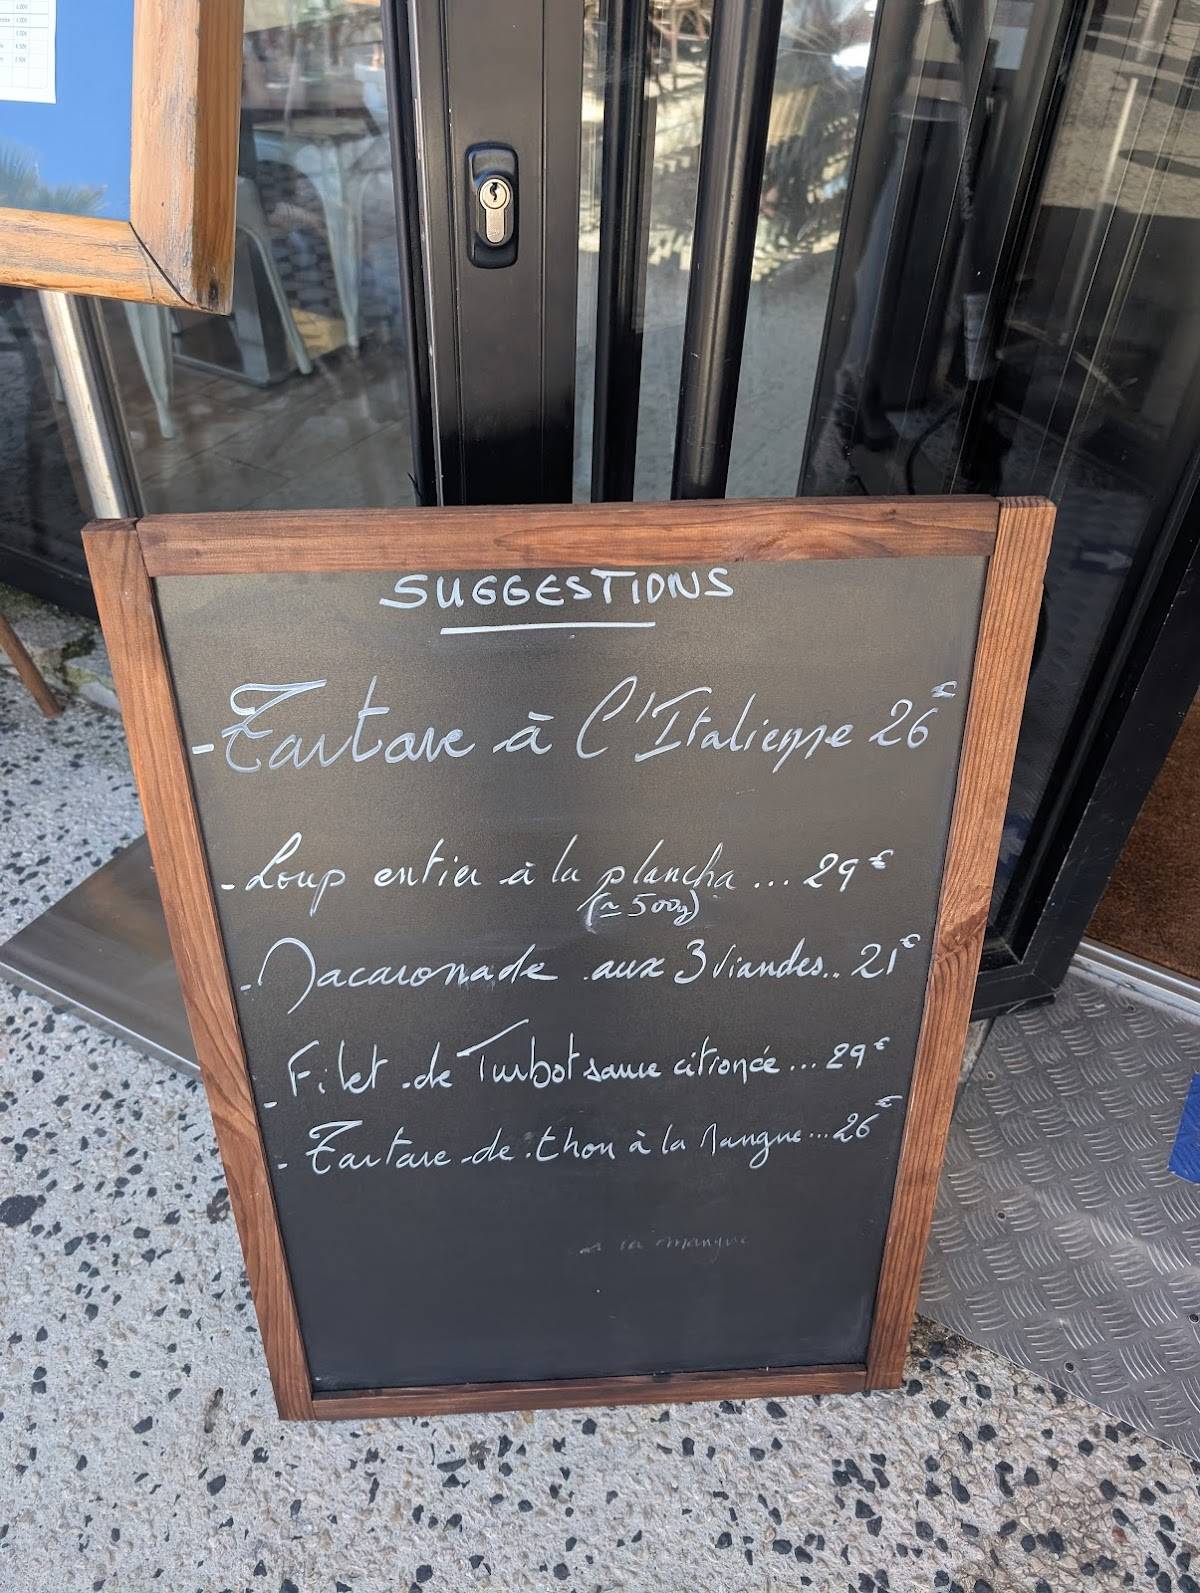 SUGGESTIONS
- Tartare à l'Italienne 26€
- Loup entier à la plancha ... 29€
(≃ 500g)
- Macaronade aux 3 viandes.. 21€
- Filet de Turbot sauce citronnée ... 29€
- Tartare de thon à la Mangue ... 26€
à la mangue